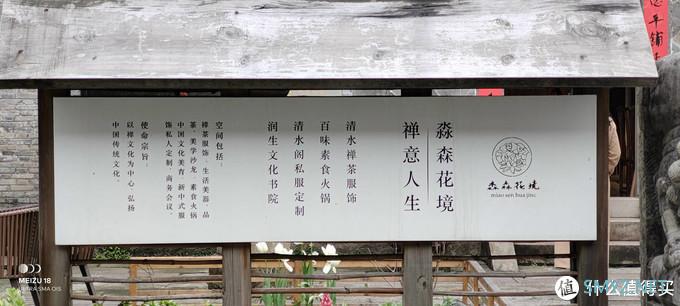 淼森花境
miao sen hua jing
淼森花境
禅意人生
清水禅茶服饰
百味素食火锅
清水阁私服定制
润生文化书院
空间包括：
禅茶服饰、生活美器、品
茶、美学沙龙、素食火锅
中国文化美育、新中式服
饰私人定制、商务会议。
使命宗旨：
以禅文化为中心，弘扬
中国传统文化。
MEIZU 18
值 什么值得买